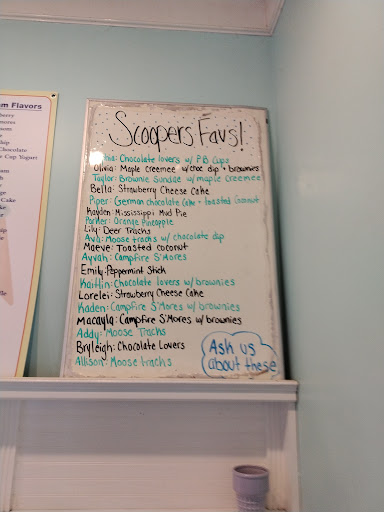 m Flavors
Scoopers Favs!
Chocolate lovers w/ PB Cups
Olivia: Maple creemee w/choc dip + brownies
Taylor: Brownie Sundae w/ maple creemee
Bella: Strawberry Cheese Cake
Piper: German chocolate Cake + toasted Coconut
Kayden: Mississippi Mud Pie
Parker: Orange Pineapple
Lily: Deer Tracks
Ava: Moose tracks w/ chocolate dip
Maeve: Toasted coconut
Ayvah: Campfire S'Mores
Emily: Peppermint Stick
Kaitlin: Chocolate lovers w/ brownies
Lorelei: Strawberry Cheese Cake
Kaden: Campfire S'Mores w/ brownies
Macayla: Campfire S'Mores w/ brownies
Addy: Moose Tracks
Bryleigh: Chocolate Lovers
Allison: Moose tracks
Ask us
about these
Chocolate
Cup Yogurt
Cake